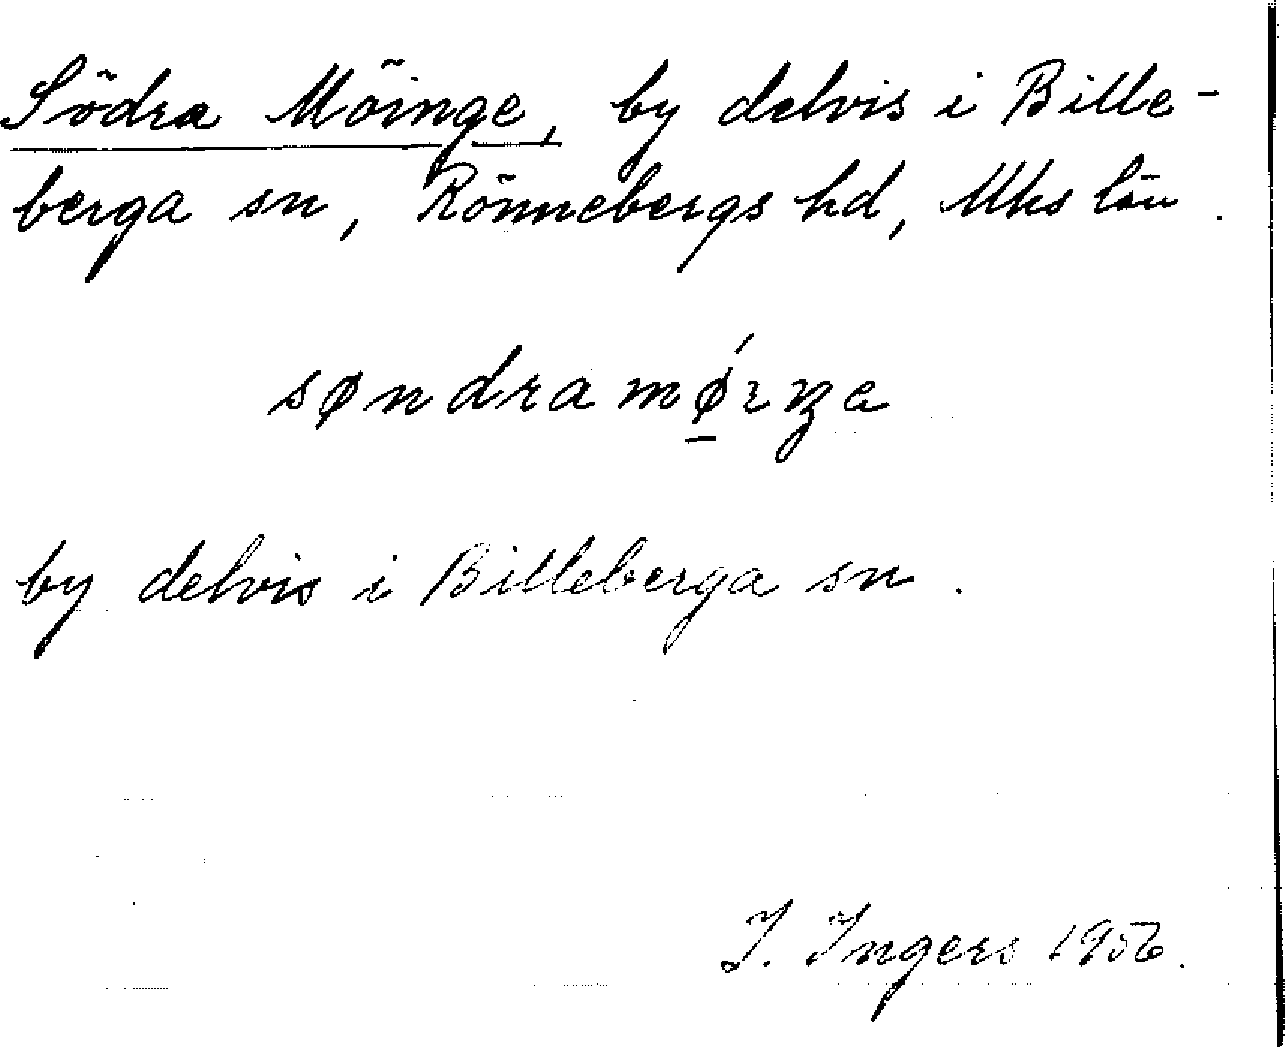 Södra Möinge, by delvis i Bille-
berga sn, Rönnebergs hd, Mhs län.
søndramǿıŋa
by delvis i Billeberga sn.
I. Ingers 1956.